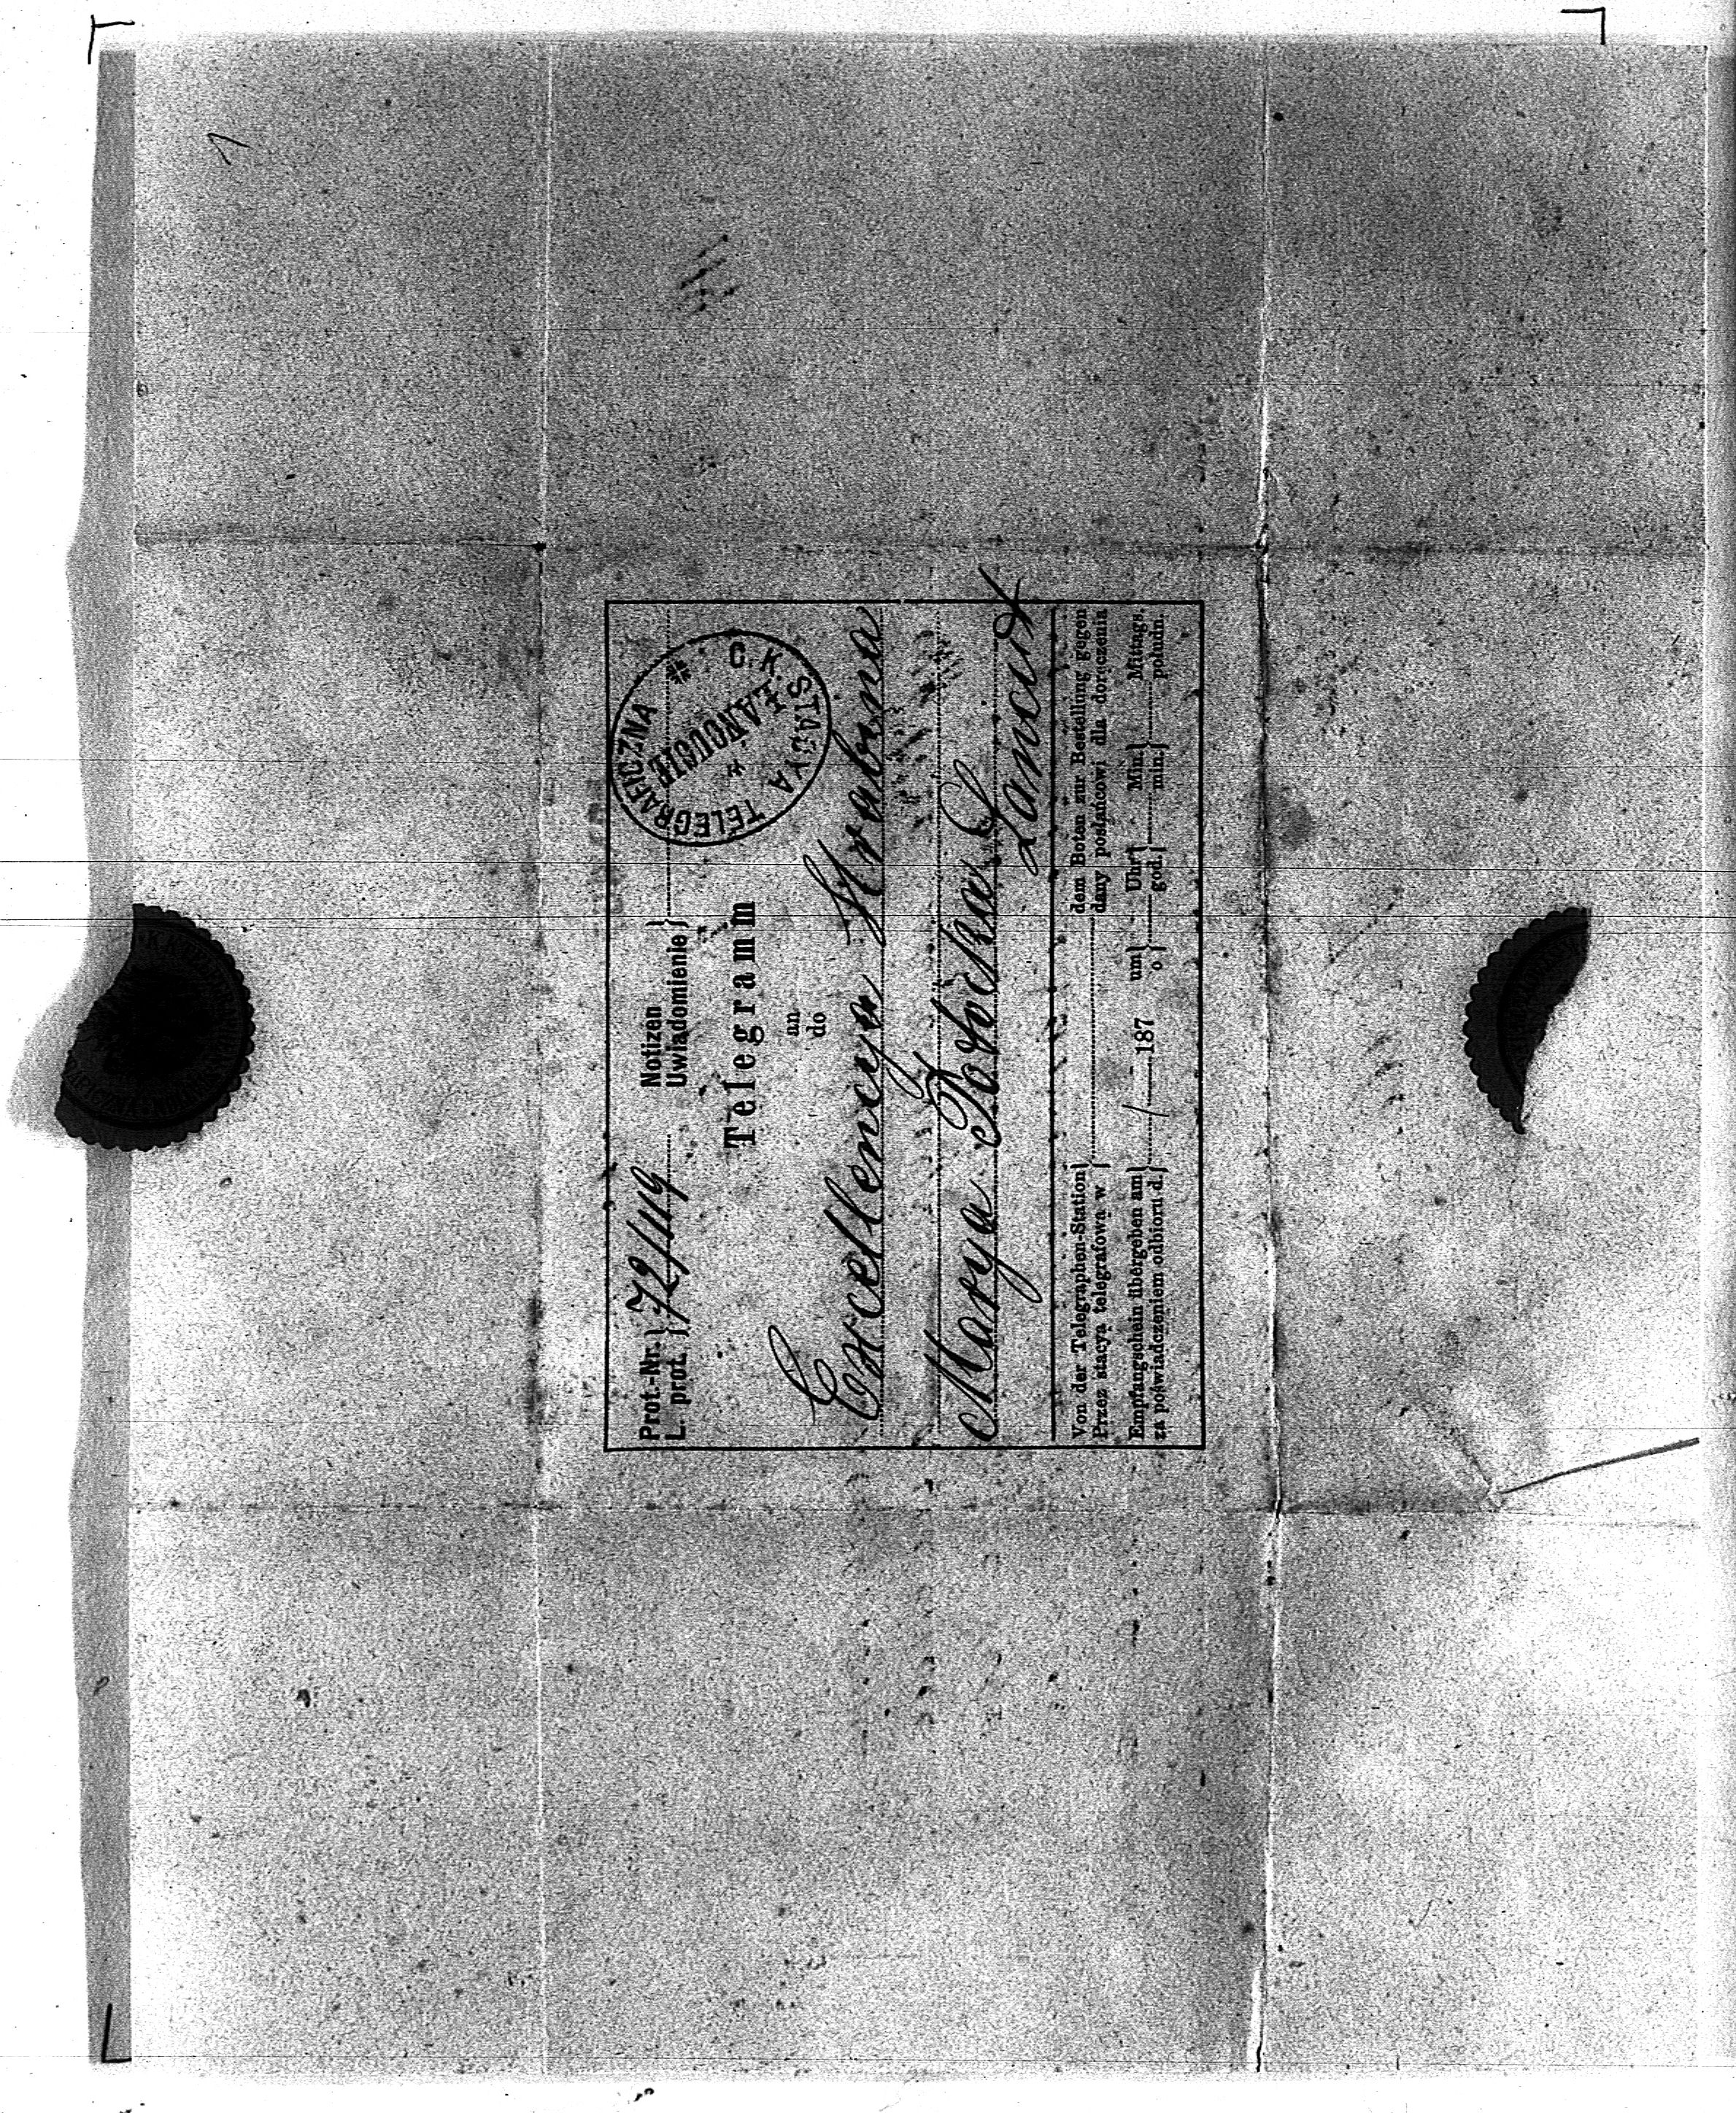 Prot.-Nr. } 72/119 Notizen }
L. prot. } Uwiadomienie }
C. K. STACYA TELEGRAFICZNA
* W ŁAŃCUCIE *
Telegramm
an
do
Excellencya Hrabina
Marya Potocka
Łańcut
Von der Telegraphen-Station } dem Boten zur Bestellung gegen
Przez stacya telegrafowa w } dany posłańcowi dla doręczenia
Empfangschein übergeben am } / 187 um } Uhr } Min } Mittags.
za poświadczeniem odbioru d. } o } god. } min. } połudn.